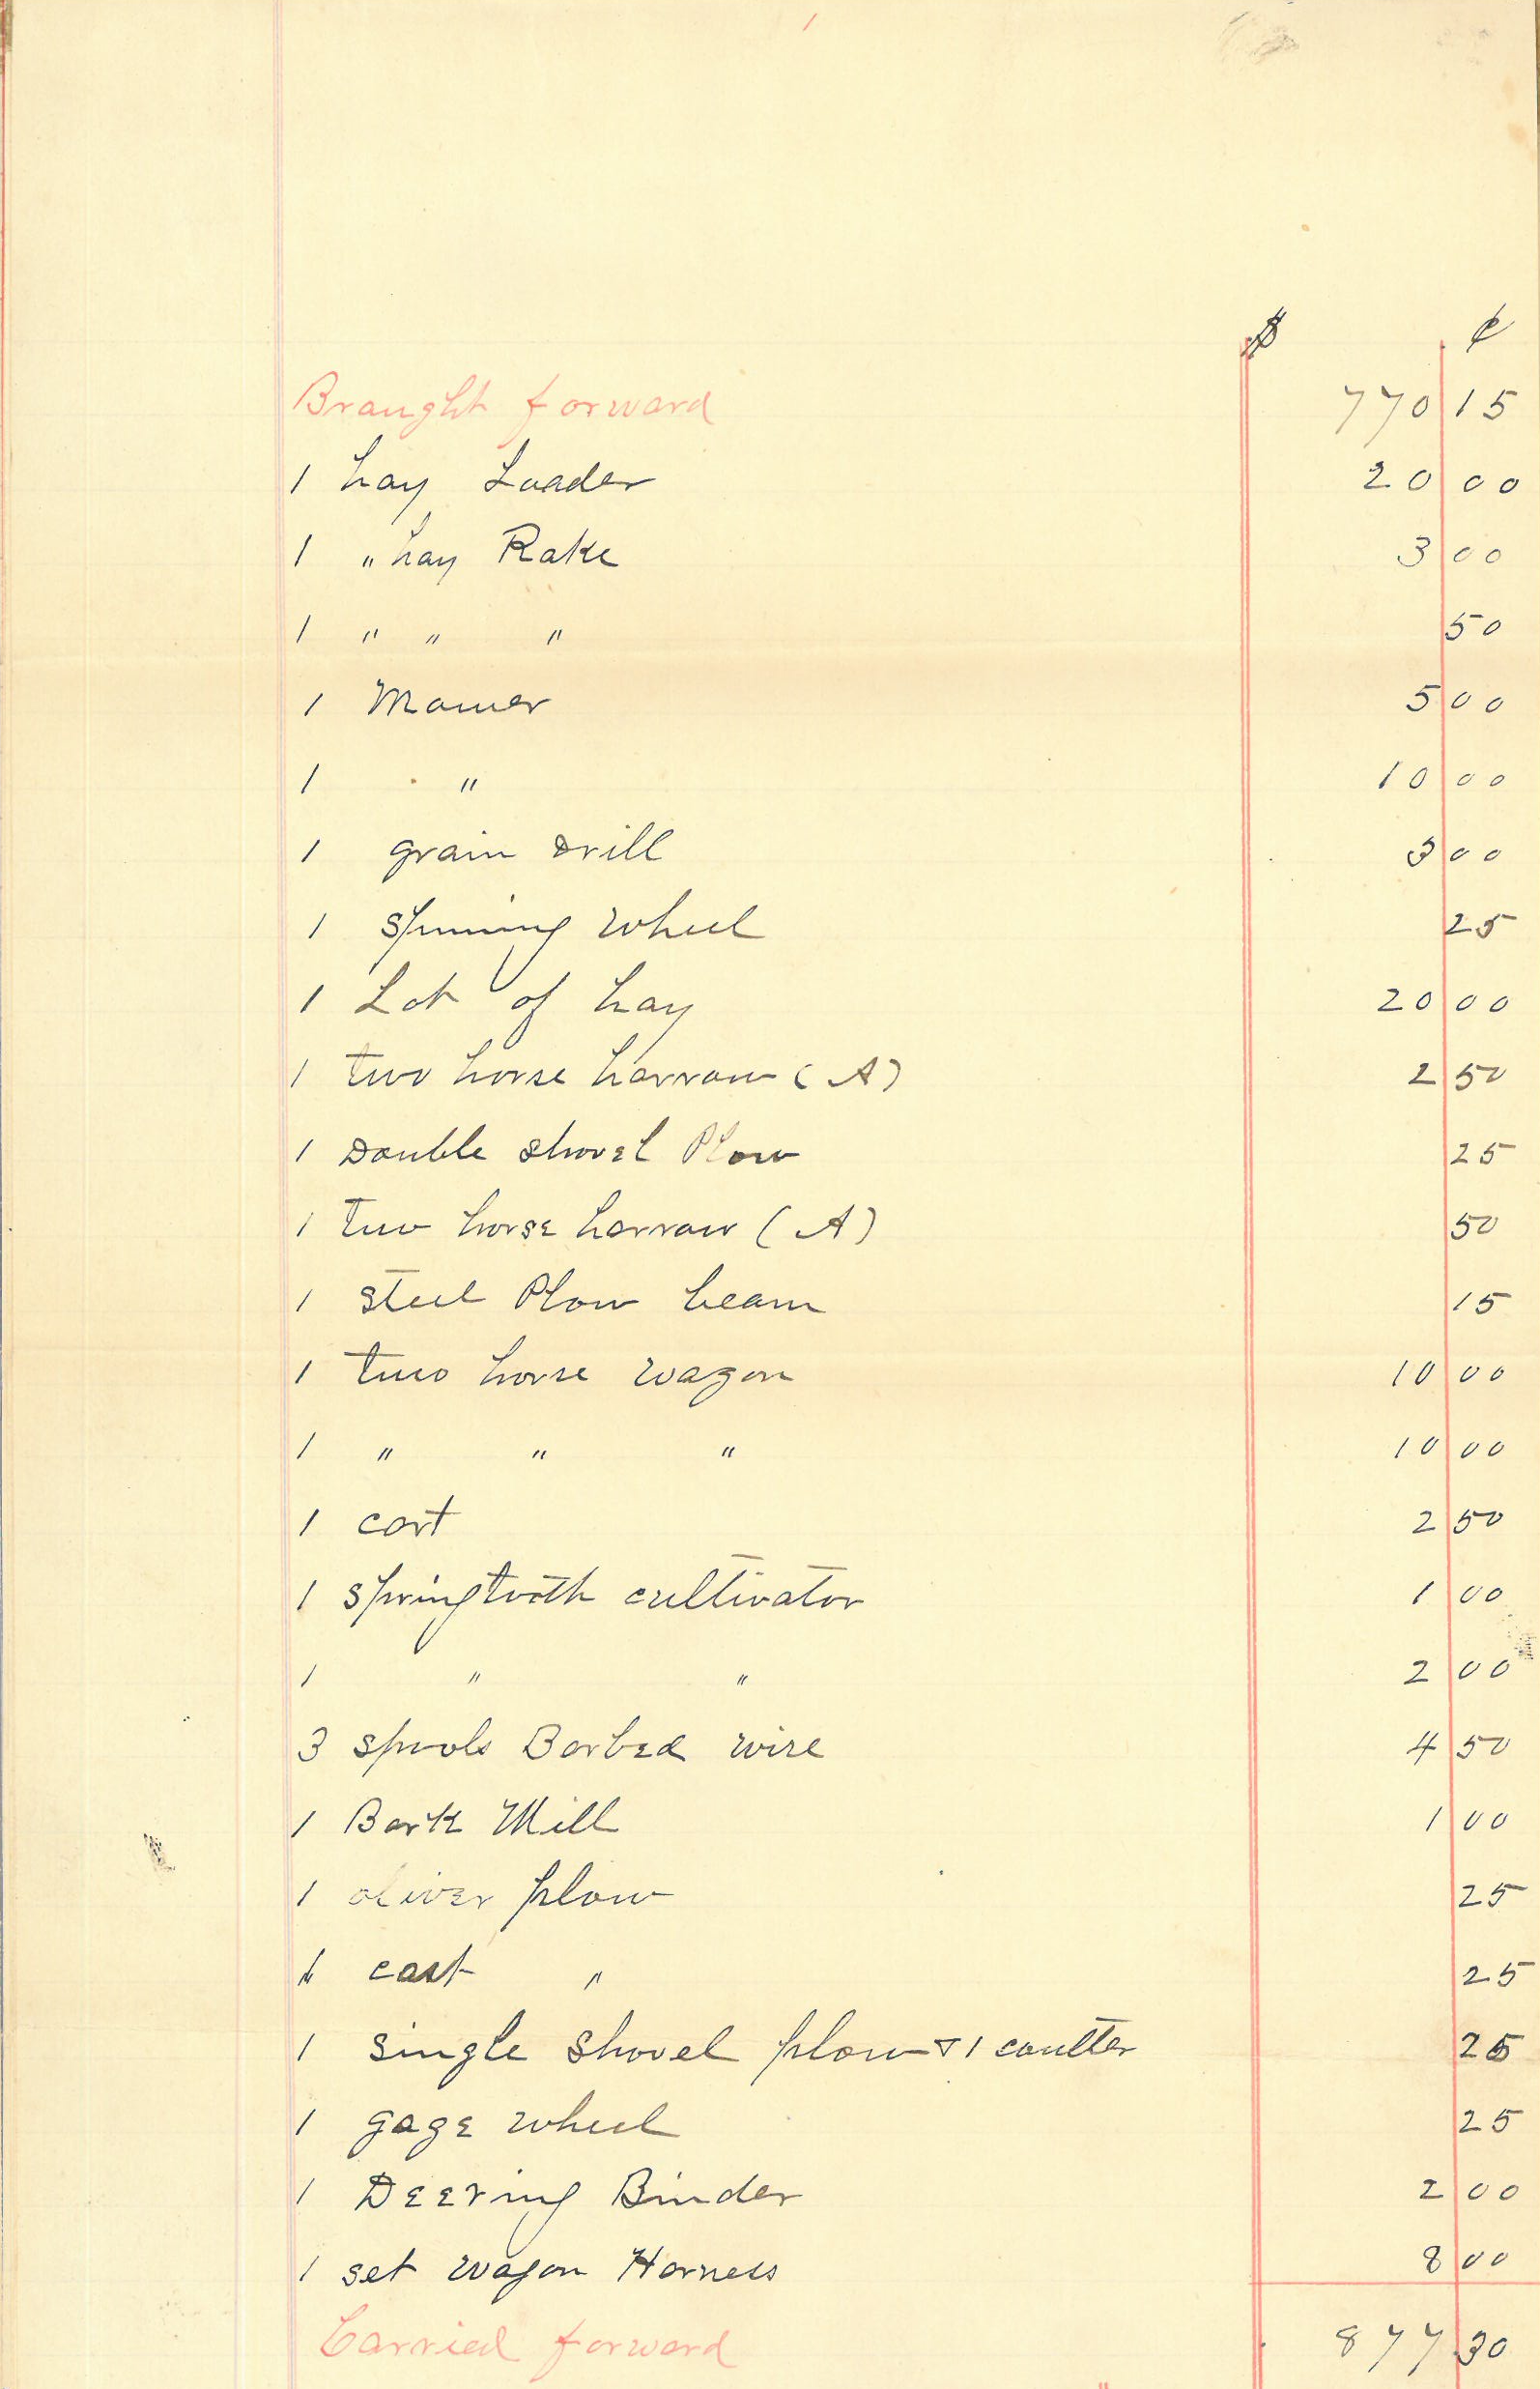 $ ¢
Braught forward 770 15
1 hay Loader 20 00
1 " hay Rake 3 00
1 " " " 50
1 Mower 5 00
1 " 10 00
1 grain Drill 3 00
1 spinning wheel 25
1 Lot of hay 20 00
1 two horse harrow (A) 2 50
1 Double shovel Plow 25
1 two horse harrow (A) 50
1 steel Plow beam 15
1 two horse wagon 10 00
1 " " " 10 00
1 cart 2 50
1 springtooth cultivator 1 00
1 " " 2 00
3 spools Barbed wire 4 50
1 Bark Mill 1 00
1 oliver plow 25
1 cast " 25
1 single shovel plow & 1 coulter 25
1 gage wheel 25
1 Deering Binder 2 00
1 set wagon Harness 8 00
Carried forward 877 30